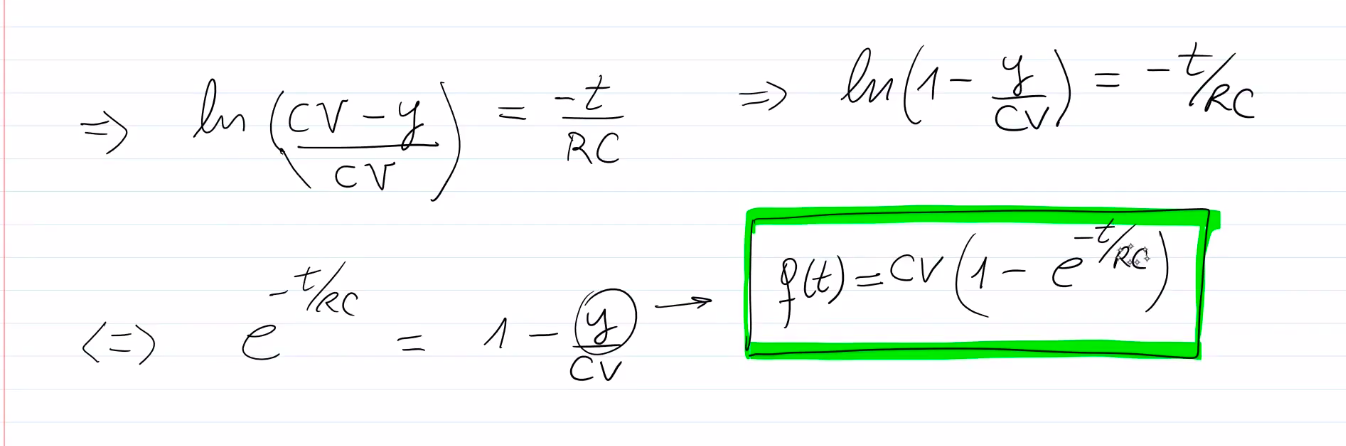 ⇒ ln((CV - y)/CV) = -t/RC ⇒ ln(1 - y/CV) = -t/RC
⇔ e^(-t/RC) = 1 - y/CV → q(t) = CV(1 - e^(-t/RC))